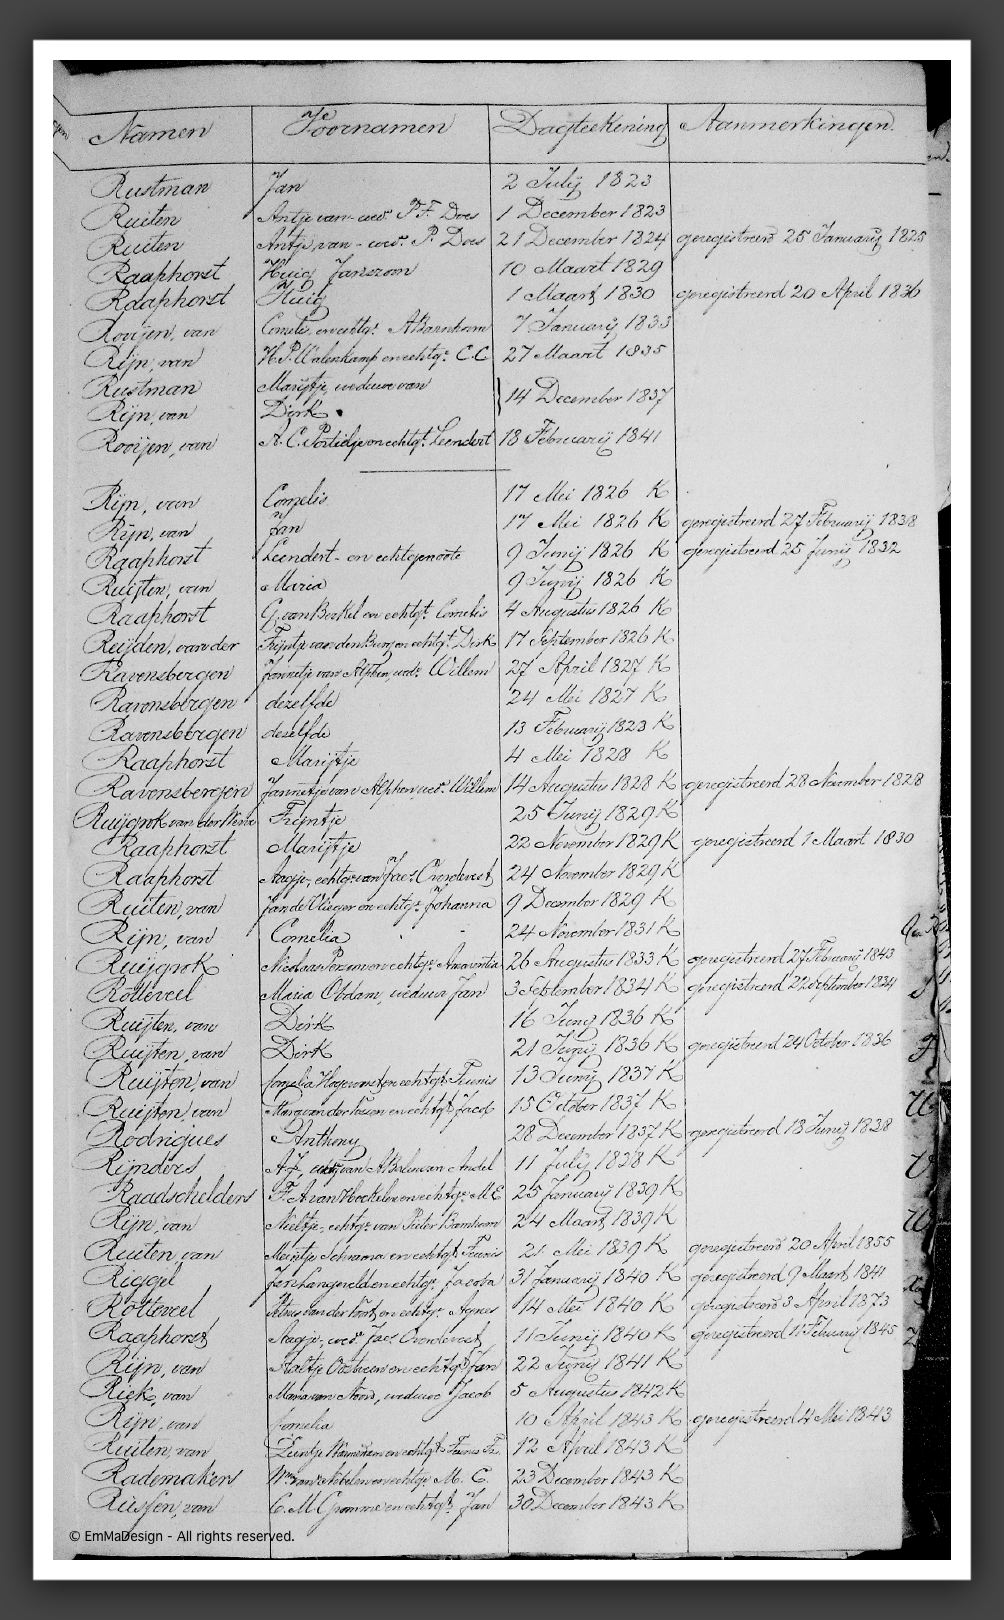 Namen Voornamen Dagteekening Aanmerkingen
Rustman Jan 2 Julij 1823
Ruiten Antje van - wed. P. F. Does 1 December 1823
Ruiten Antje, van - wed. P. Does 21 December 1824 geregistreerd 25 Januarij 1825
Raaphorst Huig Janszoon 10 Maart 1829
Raaphorst Huig 1 Maart 1830 geregistreerd 20 April 1836
Rooijen, van Cornelis, en echtgt. A Barnhoorn 7 Januarij 1833
Rijn, van H. P. Walenkamp en echtgt. C. C 27 Maart 1835
Rustman Marijtje, weduwe van
14 December 1837
Rijn, van Dirk
Rooijen, van A. C. en echtgt. Leendert 18 Februarij 1841
Rijn, van Cornelis 17 Mei 1826 K
Rijn, van Jan 17 Mei 1826 K geregistreerd 27 Februarij 1838
Raaphorst Leendert - en echtgenoote 9 Junij 1826 K geregistreerd 25 Junij 1832
Ruijten, van Maria 9 Junij 1826 K
Raaphorst G. van Berkel en echtgt. Cornelis 4 Augustus 1826 K
Reijden, van der Trijntje van den Burg en echtgt. Dirk 17 September 1826 K
Ravensbergen Jannetje van Alphen, wed. Willem 27 April 1827 K
Ravensbergen dezelfde 24 Mei 1827 K
Ravensbergen dezelfde 13 Februarij 1828 K
Raaphorst Marijtje 4 Mei 1828 K
Ravensbergen Jannetje van Alphen wed. Willem 14 Augustus 1828 K geregistreerd 28 November 1828
Ruijgrok van der Werve Trijntje 25 Junij 1829 K
Raaphorst Marijtje 22 November 1829 K geregistreerd 1 Maart 1830
Raaphorst Aagje, echtgt. van Jacs. Overdevest 24 November 1829 K
Ruiten, van Jan de Vlieger en echtgt. Johanna 9 December 1829 K
Rijn, van Cornelia 24 November 1831 K
Ruijgrok Nicolaas en echtgt. Amarentia 26 Augustus 1833 K geregistreerd 27 Februarij 1843
Rotteveel Maria Obdam, weduwe Jan 3 September 1834 K geregistreerd 22 September 1834
Ruijten, van Dirk 16 Junij 1836 K
Ruijten, van Dirk 21 Junij 1836 K geregistreerd 24 October 1836
Ruijten, van Cornelia en echtgt. Teunis 13 Junij 1837 K
Ruijten, van en echtgt. Jacob 15 October 1837 K
Rodrigues Anthony 28 December 1837 K geregistreerd 18 Junij 1838
Rijnders A. J., van Andel 11 Julij 1838 K
Raadschelders F. A. van Heekelen en echtgt. M. E 25 Januarij 1839 K
Rijn, van Neeltje, echtgt. van Pieter Barnhoorn 24 Maart 1839 K
Ruiten van Meijntje Schrama en echtgt. Teunis 21 Mei 1839 K geregistreerd 20 April 1855
Riggel Jan Langeveld en echtgt. Jacoba 31 Januarij 1840 K geregistreerd 9 Maart 1841
Rotteveel Petrus van der Voort en echtgt. Agnes 14 Mei 1840 K geregistreerd 3 April 1873
Raaphorst Aagje, wed. Jacs. Overdevest 11 Junij 1840 K geregistreerd 11 Februarij 1845
Rijn, van Aaltje Oostveen en echtgt. Jan 22 Junij 1841 K
Riek, van Maria van Noord, weduwe Jacob 5 Augustus 1842 K
Rijn, van Cornelia 10 April 1843 K geregistreerd 4 Mei 1843
Ruiten, van en echtgt. Teunis 12 April 1843 K
Rademakers en echtgt. M. C. 23 December 1843 K
Russen, van C. M. en echtgt. Jan 30 December 1843 K
© EmMaDesign - All rights reserved.